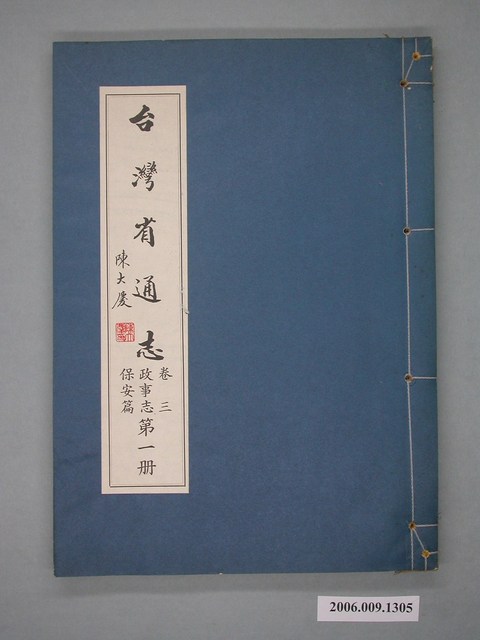 台灣省通志
陳大慶
卷三
政事志
保安篇
第一册
2006.009.1305